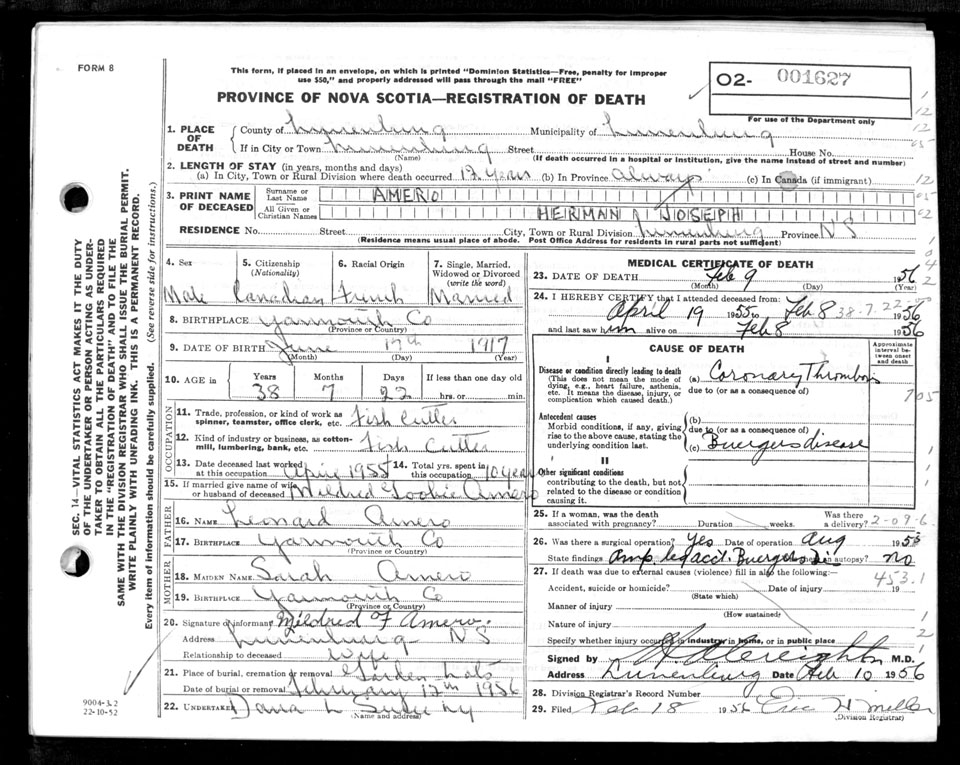 FORM 8
This form, if placed in an envelope, on which is printed "Dominion Statistics—Free, penalty for improper
use $50," and properly addressed will pass through the mail "FREE"
O2- 001627
For use of the Department only
PROVINCE OF NOVA SCOTIA—REGISTRATION OF DEATH
1. PLACE OF DEATH { County of Lunenburg Municipality of Lunenburg
If in City or Town Lunenburg Street House No.
(Name) (If death occurred in a hospital or institution, give the name instead of street and number)
2. LENGTH OF STAY (in years, months and days)
(a) In City, Town or Rural Division where death occurred 12 years (b) In Province Always (c) In Canada (if immigrant)
3. PRINT NAME OF DECEASED { Surname or Last Name AMERO
All Given or Christian Names HERMAN JOSEPH
RESIDENCE No. Street City, Town or Rural Division Lunenburg Province NS
(Residence means usual place of abode. Post Office Address for residents in rural parts not sufficient)
4. Sex 5. Citizenship (Nationality) 6. Racial Origin 7. Single, Married, Widowed or Divorced (write the word)
Male Canadian French Married
8. BIRTHPLACE Yarmouth Co
(Province or Country)
9. DATE OF BIRTH June 17th 1917
(Month) (Day) (Year)
10. AGE in Years Months Days If less than one day old
38 7 22 hrs. or min.
OCCUPATION
11. Trade, profession, or kind of work as spinner, teamster, office clerk, etc. Fish Cutter
12. Kind of industry or business, as cotton-mill, lumbering, bank, etc. Fish Cutter
13. Date deceased last worked at this occupation April 1955 14. Total yrs. spent in this occupation 10 years
15. If married give name of wife or husband of deceased Mildred Amero
FATHER
16. NAME Leonard Amero
17. BIRTHPLACE Yarmouth Co
(Province or Country)
MOTHER
18. MAIDEN NAME Sarah Amero
19. BIRTHPLACE Yarmouth Co
(Province or Country)
20. Signature of informant Mildred F Amero.
Address Lunenburg NS
Relationship to deceased Wife
21. Place of burial, cremation or removal Garden Lots
Date of burial or removal February 12th 1956
22. UNDERTAKER Dana L
(Name and address)
MEDICAL CERTIFICATE OF DEATH
23. DATE OF DEATH Feb 9 1956
(Month) (Year)
24. I HEREBY CERTIFY that I attended deceased from:
April 19 1955 to Feb 8 1956
38-7-22
and last saw him alive on Feb 8 1956
CAUSE OF DEATH
Approximate interval between onset and death
I
Disease or condition directly leading to death (a) Coronary Thrombosis
(This does not mean the mode of dying, e.g., heart failure, asthenia, etc. It means the disease, injury, or complication which caused death.)
due to (or as a consequence of)
Antecedent causes
Morbid conditions, if any, giving rise to the above cause, stating the underlying condition last.
(b)
due to (or as a consequence of)
(c) Buergers disease
II
Other significant conditions
contributing to the death, but not related to the disease or condition causing it.
25. If a woman, was the death associated with pregnancy? Duration weeks. Was there a delivery?
2-09-6
26. Was there surgical operation? Yes Date of operation Aug 1955
State findings Amp. leg acct. Buergers Dis. an autopsy? No
27. If death was due to external causes (violence) fill in also the following:
453.1
Accident, suicide or homicide? Date of injury 19
(State which)
Manner of injury
(How sustained)
Nature of injury
Specify whether injury occurred in industry in home, or in public place
Signed by Creighton M.D.
Address Lunenburg Date Feb 10 1956
28. Division Registrar's Record Number
29. Filed Feb 18 1956 Eric W Miller
(Division Registrar)
SEC. 14—VITAL STATISTICS ACT MAKES IT THE DUTY
OF THE UNDERTAKER OR PERSON ACTING AS UNDER-
TAKER TO OBTAIN ALL THE PARTICULARS REQUIRED
IN THE "REGISTRATION OF DEATH" AND TO FILE THE
SAME WITH THE DIVISION REGISTRAR WHO SHALL ISSUE THE BURIAL PERMIT.
WRITE PLAINLY WITH UNFADING INK. THIS IS A PERMANENT RECORD.
Every item of information should be carefully supplied. (See reverse side for instructions.)
9004-3.2
22-10-52